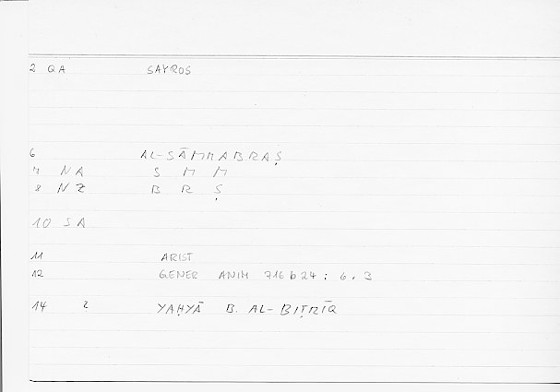 2 QA SAYROS
6 AL-SĀMMABRAṢ
7 NA S M M
8 NZ B R Ṣ
10 SA
11 ARIST
12 GENER ANIM 716b24 : 6.3
14 2 YAḤYĀ B. AL-BIṬRĪQ